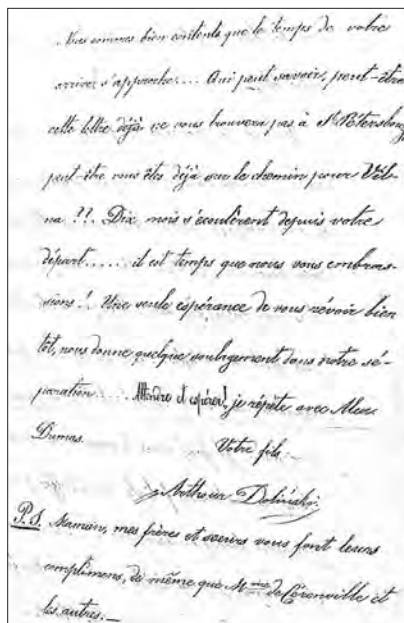 Nous sommes bien contents que le temps de votre
arrivée s'approche.... Qui peut savoir, peut-être
cette lettre déjà ne vous trouvera pas à St Pétersbourg,
peut-être vous êtes déjà sur le chemin pour Vil-
na ??. Dix mois s'écoulèrent depuis votre
départ..... il est temps que nous vous embras-
sions! Une seule espérance de vous révoir bien
tôt, nous donne quelque soulagement dans notre sé-
paration.... Attendre et espérer! je répète avec Alex
Dumas.
Votre fils
Arthour Doliński.
P.S. Maman, mes frères et soeurs vous font leurs
complimens, de même que Mme de Géronville et
les autres.—